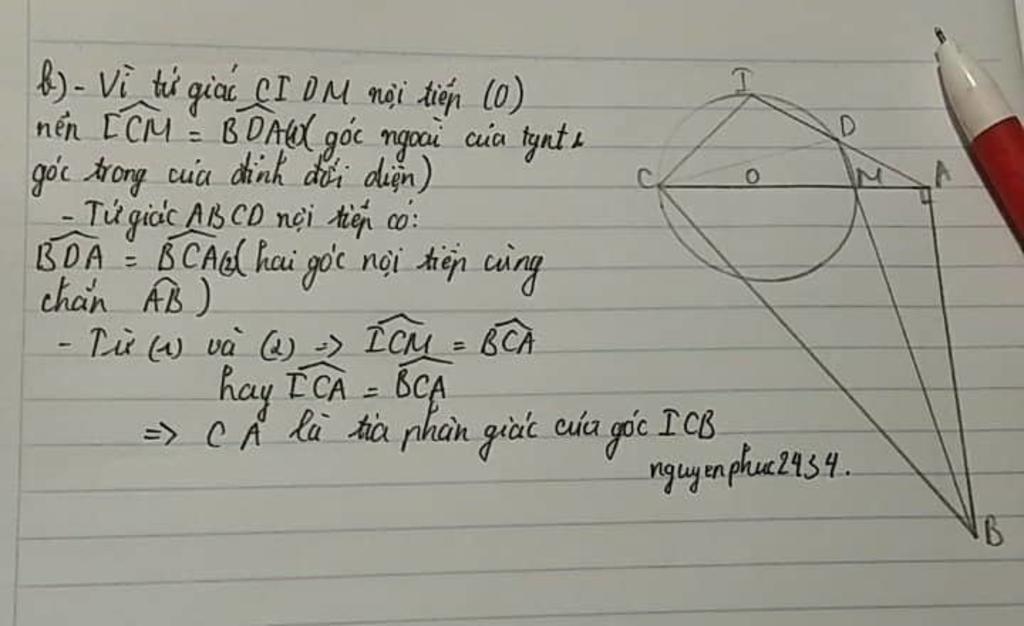 b) - Vì tứ giác CIDM nội tiếp (O)
nên ICM = BDA(1)( góc ngoài của tgnt &
góc trong của đỉnh đối diện)
- Tứ giác ABCD nội tiếp có:
BDA = BCA(2)( hai góc nội tiếp cùng
chắn AB )
- Từ (1) và (2) => ICM = BCA
hay ICA = BCA
=> CA là tia phân giác của góc ICB
nguyenphuc2434.
I
D
C
O
M
A
B